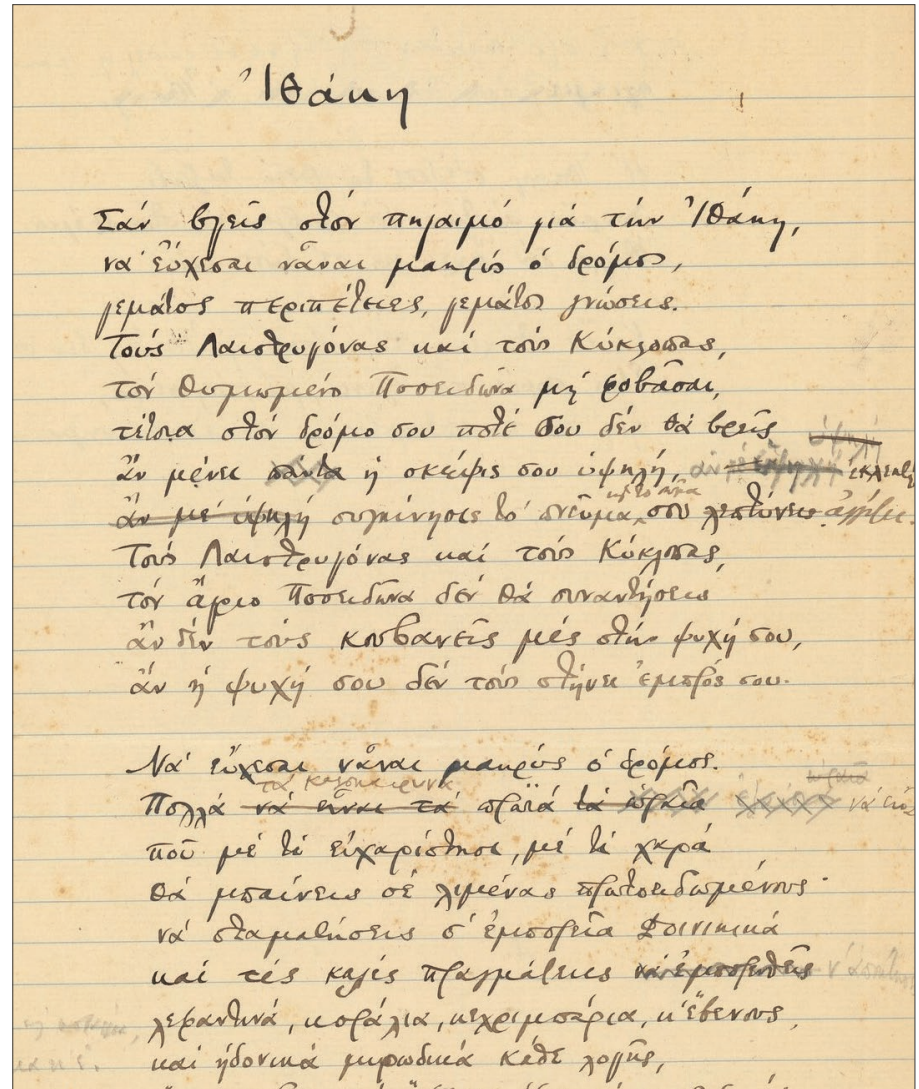 Ἰθάκη
Σάν βγεῖς στόν πηγαιμό γιά τήν Ἰθάκη,
νά εὔχεσαι νἆναι μακρύς ὁ δρόμος,
γεμάτος περιπέτειες, γεμάτος γνώσεις.
Τούς Λαιστρυγόνας καί τούς Κύκλωπας,
τόν θυμωμένο Ποσειδῶνα μή φοβᾶσαι,
τέτοια στόν δρόμο σου ποτέ σου δέν θά βρεῖς
ὑψηλή
ἄν μένει πάντα ἡ σκέψις σου ὑψηλή, ἄν ἐκλεκτή
καί τό σῶμα
ἄν μέ ὑψηλή συγκίνησις τό πνεῦμα σου λεπτύνεις ἀγγίζει.
Τούς Λαιστρυγόνας καί τούς Κύκλωπας,
τόν ἄγριο Ποσειδῶνα δέν θά συναντήσεις
ἄν δέν τούς κουβανεῖς μές στήν ψυχή σου,
ἄν ἡ ψυχή σου δέν τούς στήνει ἐμπρός σου.
Νά εὔχεσαι νἆναι μακρύς ὁ δρόμος.
τά καλοκαιρινά
Πολλά νά εἶναι τά πρωϊά τά πρωϊά νά εἶναι
πού μέ τί εὐχαρίστησι, μέ τί χαρά
θά μπαίνεις σέ λιμένας πρωτοειδωμένους
νά σταματήσεις σ' ἐμπορεῖα Φοινικικά
καί τές καλές πραγμάτειες νά ἐμπορευθεῖς ν' ἀποκτήσεις
λεφαντινά, κοράλια, κεχριμπάρια, κ' ἔβενους,
καί ἡδονικά μυρωδικά κάθε λογῆς,